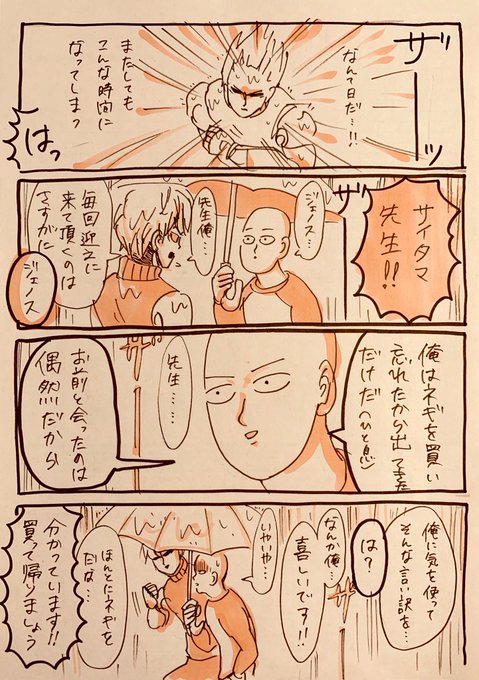 ザーーッ
なんて日だ…!!
またしても
こんな時間に
なってしまっ
はっ
サイタマ
先生!!
ザ
ジェノス…
先生俺…
毎回迎えに
来て頂くのは
さすがに
ジェノス
俺はネギを買い
忘れたから出てきた
だけだ(ひと息)
先生……
お前と会ったのは
偶然だから
俺に気を使って
そんな言い訳を…
は?
なんか俺…
嬉しいです!!
いやいや…
ほんとにネギを
だな…
分かっています!!
買って帰りましょう